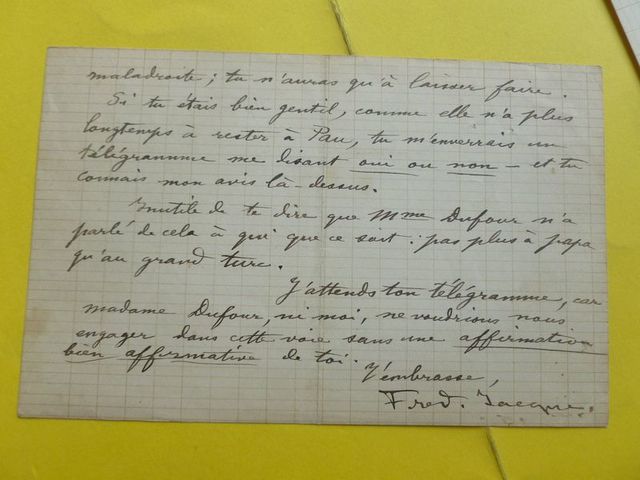 maladroite ; tu n'auras qu'à laisser faire.
Si tu étais bien gentil, comme elle n'a plus
longtemps à rester à Pau, tu m'enverrais un
télégramme me disant oui ou non – et tu
connais mon avis là-dessus.
Inutile de te dire que Mme Dufour n'a
parlé de cela à qui que ce soit : pas plus à papa
qu'au grand turc.
J'attends ton télégramme, car
madame Dufour, ni moi, ne voudrions nous
engager dans cette voie sans une affirmation
bien affirmative de toi.
T'embrasse,
Fred. Jacque.